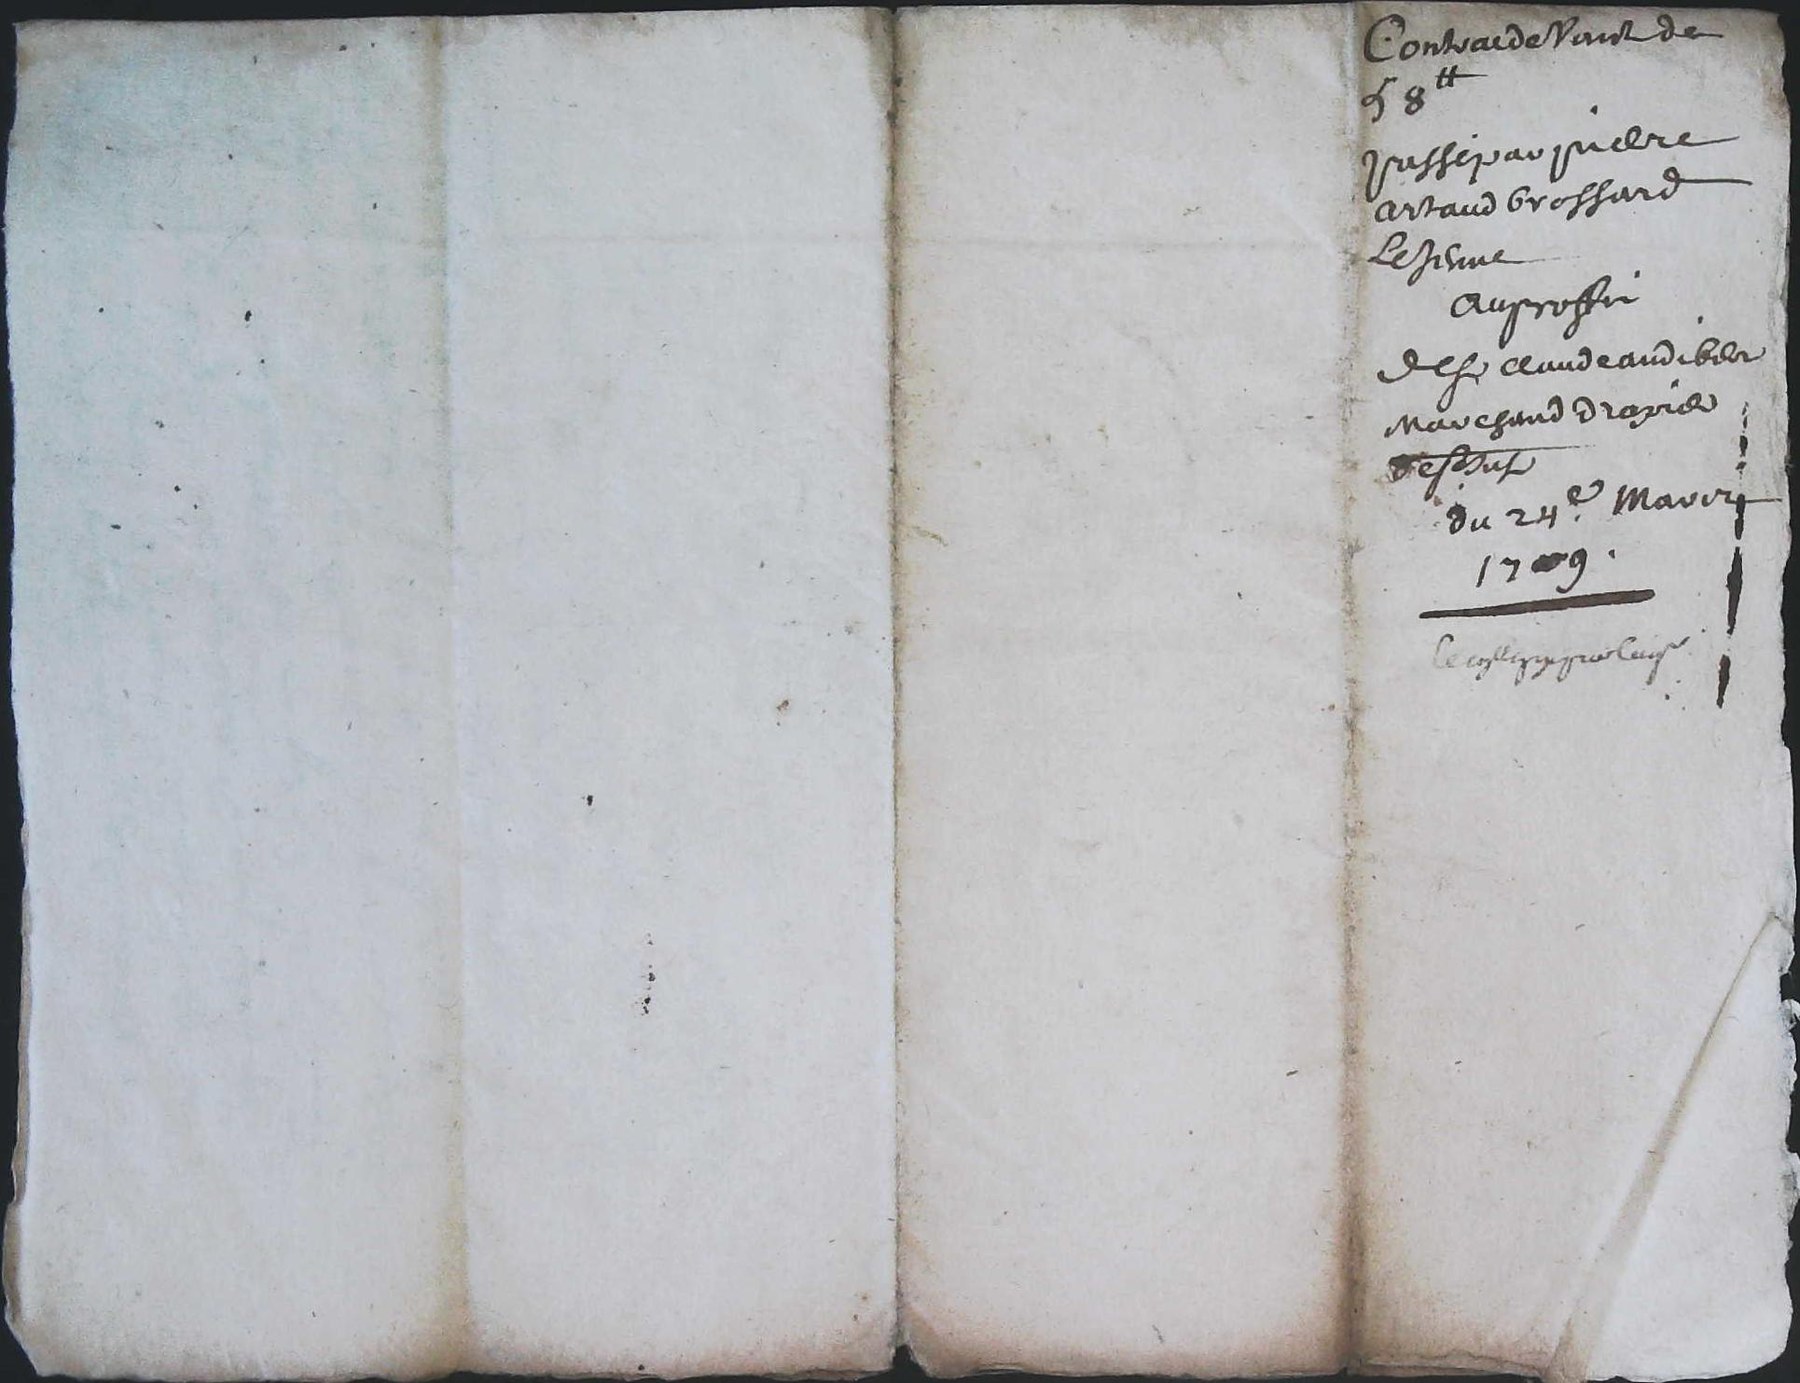 Contrac de Vante de
58 ₶
passé par pierre
artaud brossard
Le Jeune
Au proffit
de Sr claude audiber
Marchand drapier
du 24e. Mars
1709.